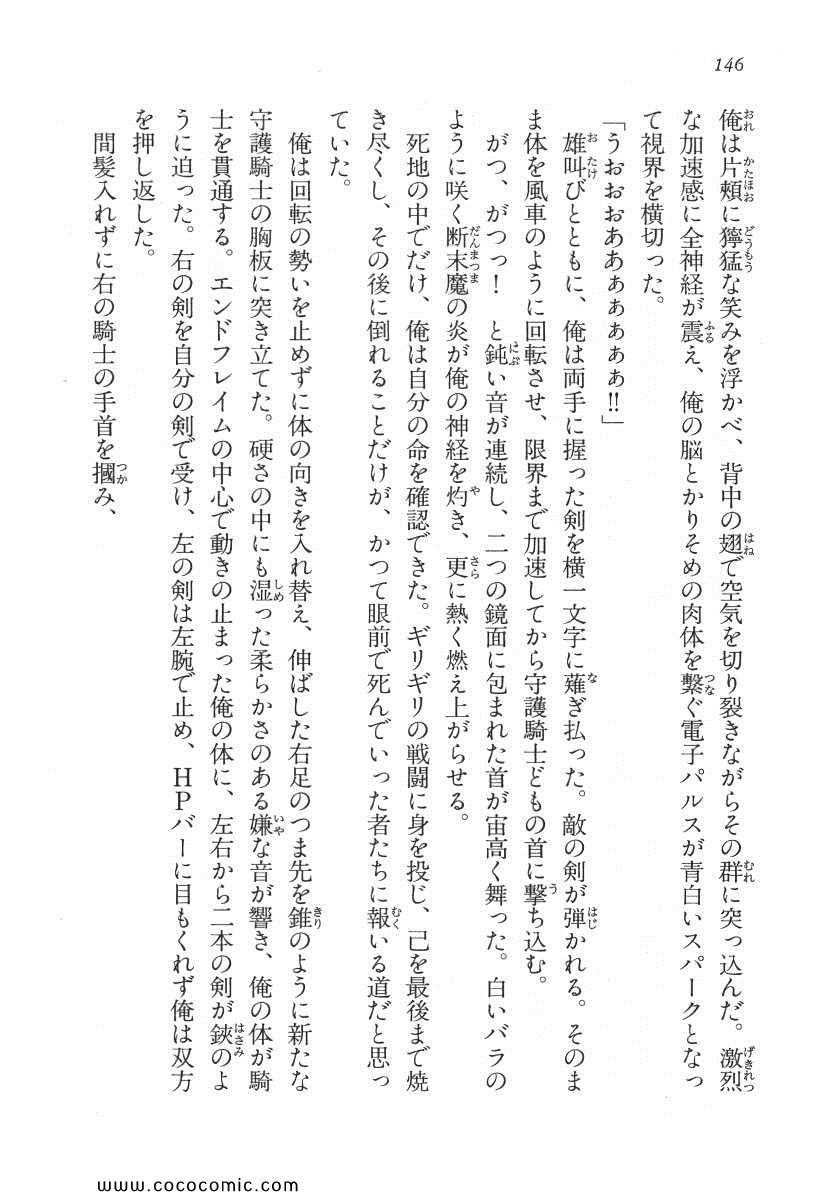 146
俺は片頬に獰猛な笑みを浮かべ、背中の翅で空気を切り裂きながらその群に突っ込んだ。激烈
な加速感に全神経が震え、俺の脳とかりそめの肉体を繋ぐ電子パルスが青白いスパークとなっ
て視界を横切った。
「うおおおあああぁぁぁぁ!!」
雄叫びとともに、俺は両手に握った剣を横一文字に薙ぎ払った。敵の剣が弾かれる。そのま
ま体を風車のように回転させ、限界まで加速してから守護騎士どもの首に撃ち込む。
がつ、がつっ！　と鈍い音が連続し、二つの鏡面に包まれた首が宙高く舞った。白いバラの
ように咲く断末魔の炎が俺の神経を灼き、更に熱く燃え上がらせる。
死地の中でだけ、俺は自分の命を確認できた。ギリギリの戦闘に身を投じ、己を最後まで焼
き尽くし、その後に倒れることだけが、かつて眼前で死んでいった者たちに報いる道だと思っ
ていた。
俺は回転の勢いを止めずに体の向きを入れ替え、伸ばした右足のつま先を錐のように新たな
守護騎士の胸板に突き立てた。硬さの中にも湿った柔らかさのある嫌な音が響き、俺の体が騎
士を貫通する。エンドフレイムの中心で動きの止まった俺の体に、左右から二本の剣が鋏のよ
うに迫った。右の剣を自分の剣で受け、左の剣は左腕で止め、HPバーに目もくれず俺は双方
を押し返した。
間髪入れずに右の騎士の手首を摑み、
www.cococomic.com